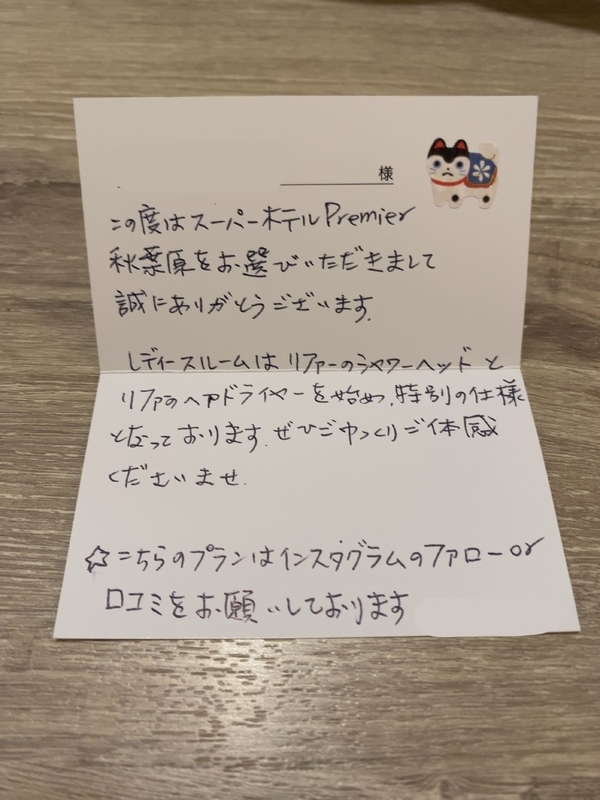 様
この度はスーパーホテルPremier
秋葉原をお選びいただきまして
誠にありがとうございます.
レディースルームはリファーのシャワーヘッドと
リファのヘアドライヤーを始め、特別の仕様
となっております.ぜひごゆっくりご体感
くださいませ.
☆こちらのプランはインスタグラムのファローor
口コミをお願いしております